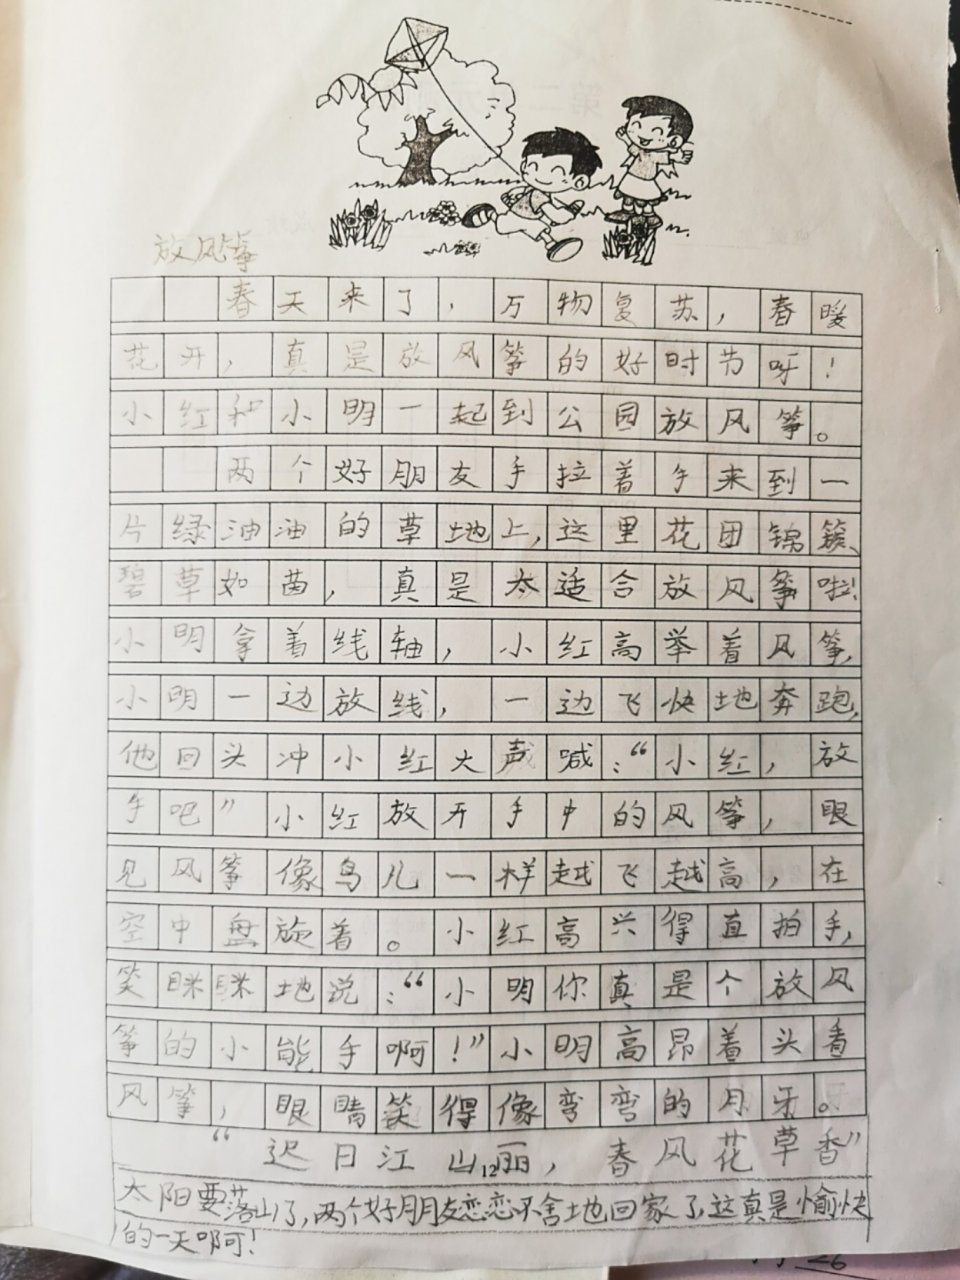 放风筝
春天来了，万物复苏，春暖
花开，真是放风筝的好时节呀！
小红和小明一起到公园放风筝。
两个好朋友手拉着手来到一
片绿油油的草地上，这里花团锦簇、
碧草如茵，真是太适合放风筝啦！
小明拿着线轴，小红高举着风筝，
小明一边放线，一边飞快地奔跑，
他回头冲小红大声喊：“小红，放
手吧”小红放开手中的风筝，眼
见风筝像鸟儿一样越飞越高，在
空中盘旋着。小红高兴得直拍手，
笑眯眯地说：“小明你真是个放风
筝的小能手啊！”小明高昂着头看
风筝，眼睛笑得像弯弯的月牙。
“迟日江山丽，春风花草香”
12
太阳要落山了，两个好朋友恋恋不舍地回家了，这真是愉快
的一天啊！